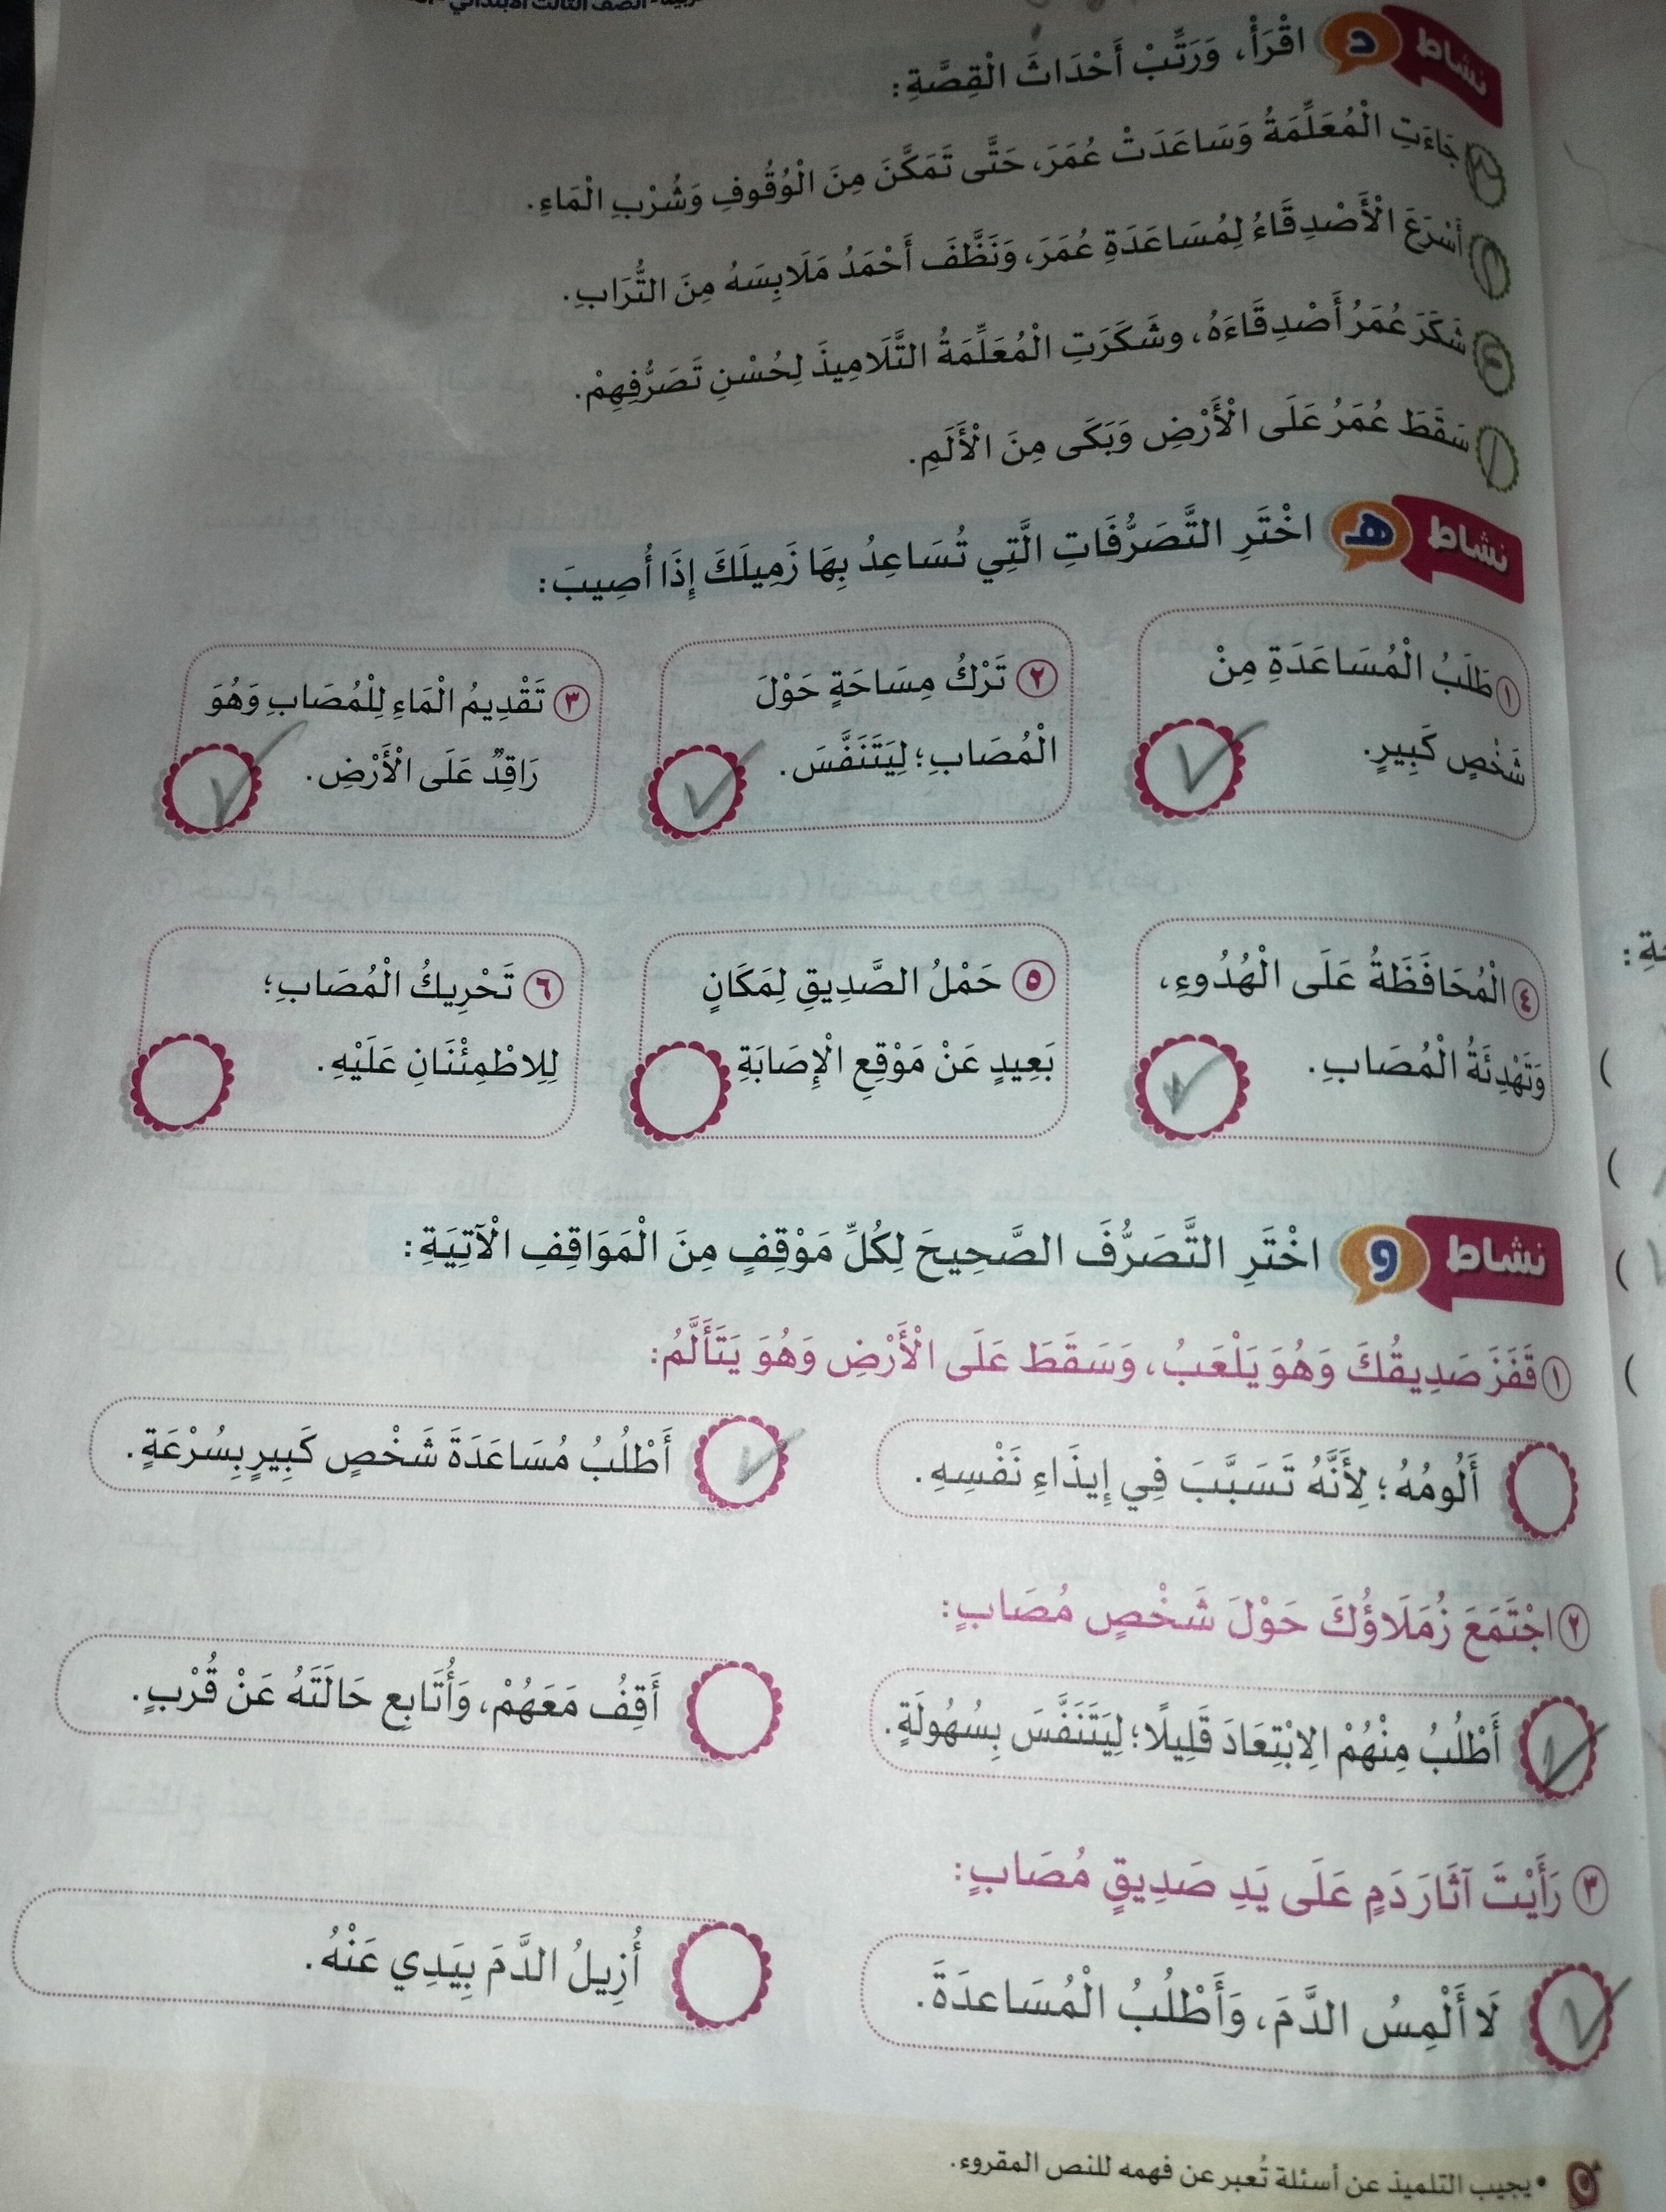 الصف الثالث الابتدائي
نشاط د اقْرَأْ، وَرَتِّبْ أَحْدَاثَ الْقِصَّةِ:
جَاءَتِ الْمُعَلِّمَةُ وَسَاعَدَتْ عُمَرَ، حَتَّى تَمَكَّنَ مِنَ الْوُقُوفِ وَشُرْبِ الْمَاءِ.
أَسْرَعَ الْأَصْدِقَاءُ لِمُسَاعَدَةِ عُمَرَ، وَنَظَّفَ أَحْمَدُ مَلَابِسَهُ مِنَ التُّرَابِ.
٤ شَكَرَ عُمَرُ أَصْدِقَاءَهُ، وشَكَرَتِ الْمُعَلِّمَةُ التَّلَامِيذَ لِحُسْنِ تَصَرُّفِهِمْ.
١ سَقَطَ عُمَرُ عَلَى الْأَرْضِ وَبَكَى مِنَ الْأَلَمِ.
نشاط هـ اخْتَرِ التَّصَرُّفَاتِ الَّتِي تُسَاعِدُ بِهَا زَمِيلَكَ إِذَا أُصِيبَ:
١ طَلَبُ الْمُسَاعَدَةِ مِنْ
شَخْصٍ كَبِيرٍ.
٢ تَرْكُ مِسَاحَةٍ حَوْلَ
الْمُصَابِ؛ لِيَتَنَفَّسَ.
٣ تَقْدِيمُ الْمَاءِ لِلْمُصَابِ وَهُوَ
رَاقِدٌ عَلَى الْأَرْضِ.
٤ الْمُحَافَظَةُ عَلَى الْهُدُوءِ،
وَتَهْدِئَةُ الْمُصَابِ.
٥ حَمْلُ الصَّدِيقِ لِمَكَانٍ
بَعِيدٍ عَنْ مَوْقِعِ الْإِصَابَةِ
٦ تَحْرِيكُ الْمُصَابِ؛
لِلِاطْمِئْنَانِ عَلَيْهِ.
نشاط و اخْتَرِ التَّصَرُّفَ الصَّحِيحَ لِكُلِّ مَوْقِفٍ مِنَ الْمَوَاقِفِ الْآتِيَةِ:
١ قَفَزَ صَدِيقُكَ وَهُوَ يَلْعَبُ، وَسَقَطَ عَلَى الْأَرْضِ وَهُوَ يَتَأَلَّمُ:
أَلُومُهُ؛ لِأَنَّهُ تَسَبَّبَ فِي إِيذَاءِ نَفْسِهِ.
أَطْلُبُ مُسَاعَدَةَ شَخْصٍ كَبِيرٍ بِسُرْعَةٍ.
٢ اجْتَمَعَ زُمَلَاؤُكَ حَوْلَ شَخْصٍ مُصَابٍ:
أَطْلُبُ مِنْهُمْ الِابْتِعَادَ قَلِيلًا؛ لِيَتَنَفَّسَ بِسُهُولَةٍ.
أَقِفُ مَعَهُمْ، وَأُتَابِع حَالَتَهُ عَنْ قُرْبٍ.
٣ رَأَيْتَ آثَارَ دَمٍ عَلَى يَدِ صَدِيقٍ مُصَابٍ:
لَا أَلْمِسُ الدَّمَ، وَأَطْلُبُ الْمُسَاعدَةَ.
أُزِيلُ الدَّمَ بِيَدِي عَنْهُ.
• يجيب التلميذ عن أسئلة تُعبر عن فهمه للنص المقروء.